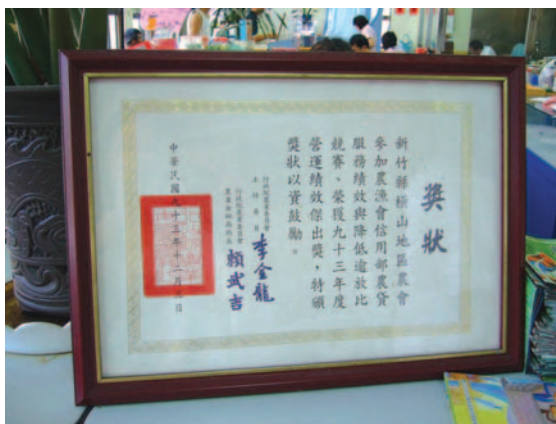 獎狀
新竹縣橫山地區農會
參加農漁會信用部農貸
服務績效與降低逾放比
競賽、榮獲九十三年度
營運績效傑出獎，特頒
獎狀以資鼓勵。
行政院農業委員會
主任委員 李金龍
行政院農業委員會
農業金融局局長 賴武吉
中華民國九十三年十二月 日